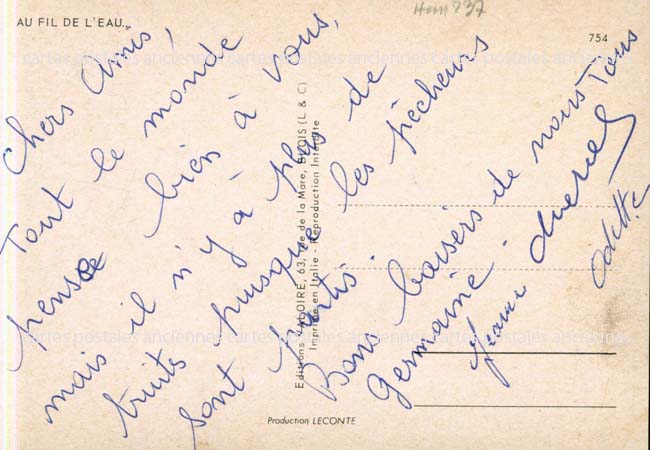 AU FIL DE L'EAU...
754
Chers Amis,
Tout le monde
pense bien à vous,
mais il n'y a plus de
truites puisque les pêcheurs
sont partis.
Bons baisers de nous Tous
Germaine
Jeanne
Odette
Editions VALOIRE, 63, rue de la Mare, BLOIS (L & C)
Imprimé en Italie - Reproduction Interdite
Production LECONTE
cartes postales anciennes cartes postales anciennes cartes postales anciennes
cartes postales anciennes cartes postales anciennes cartes postales anciennes